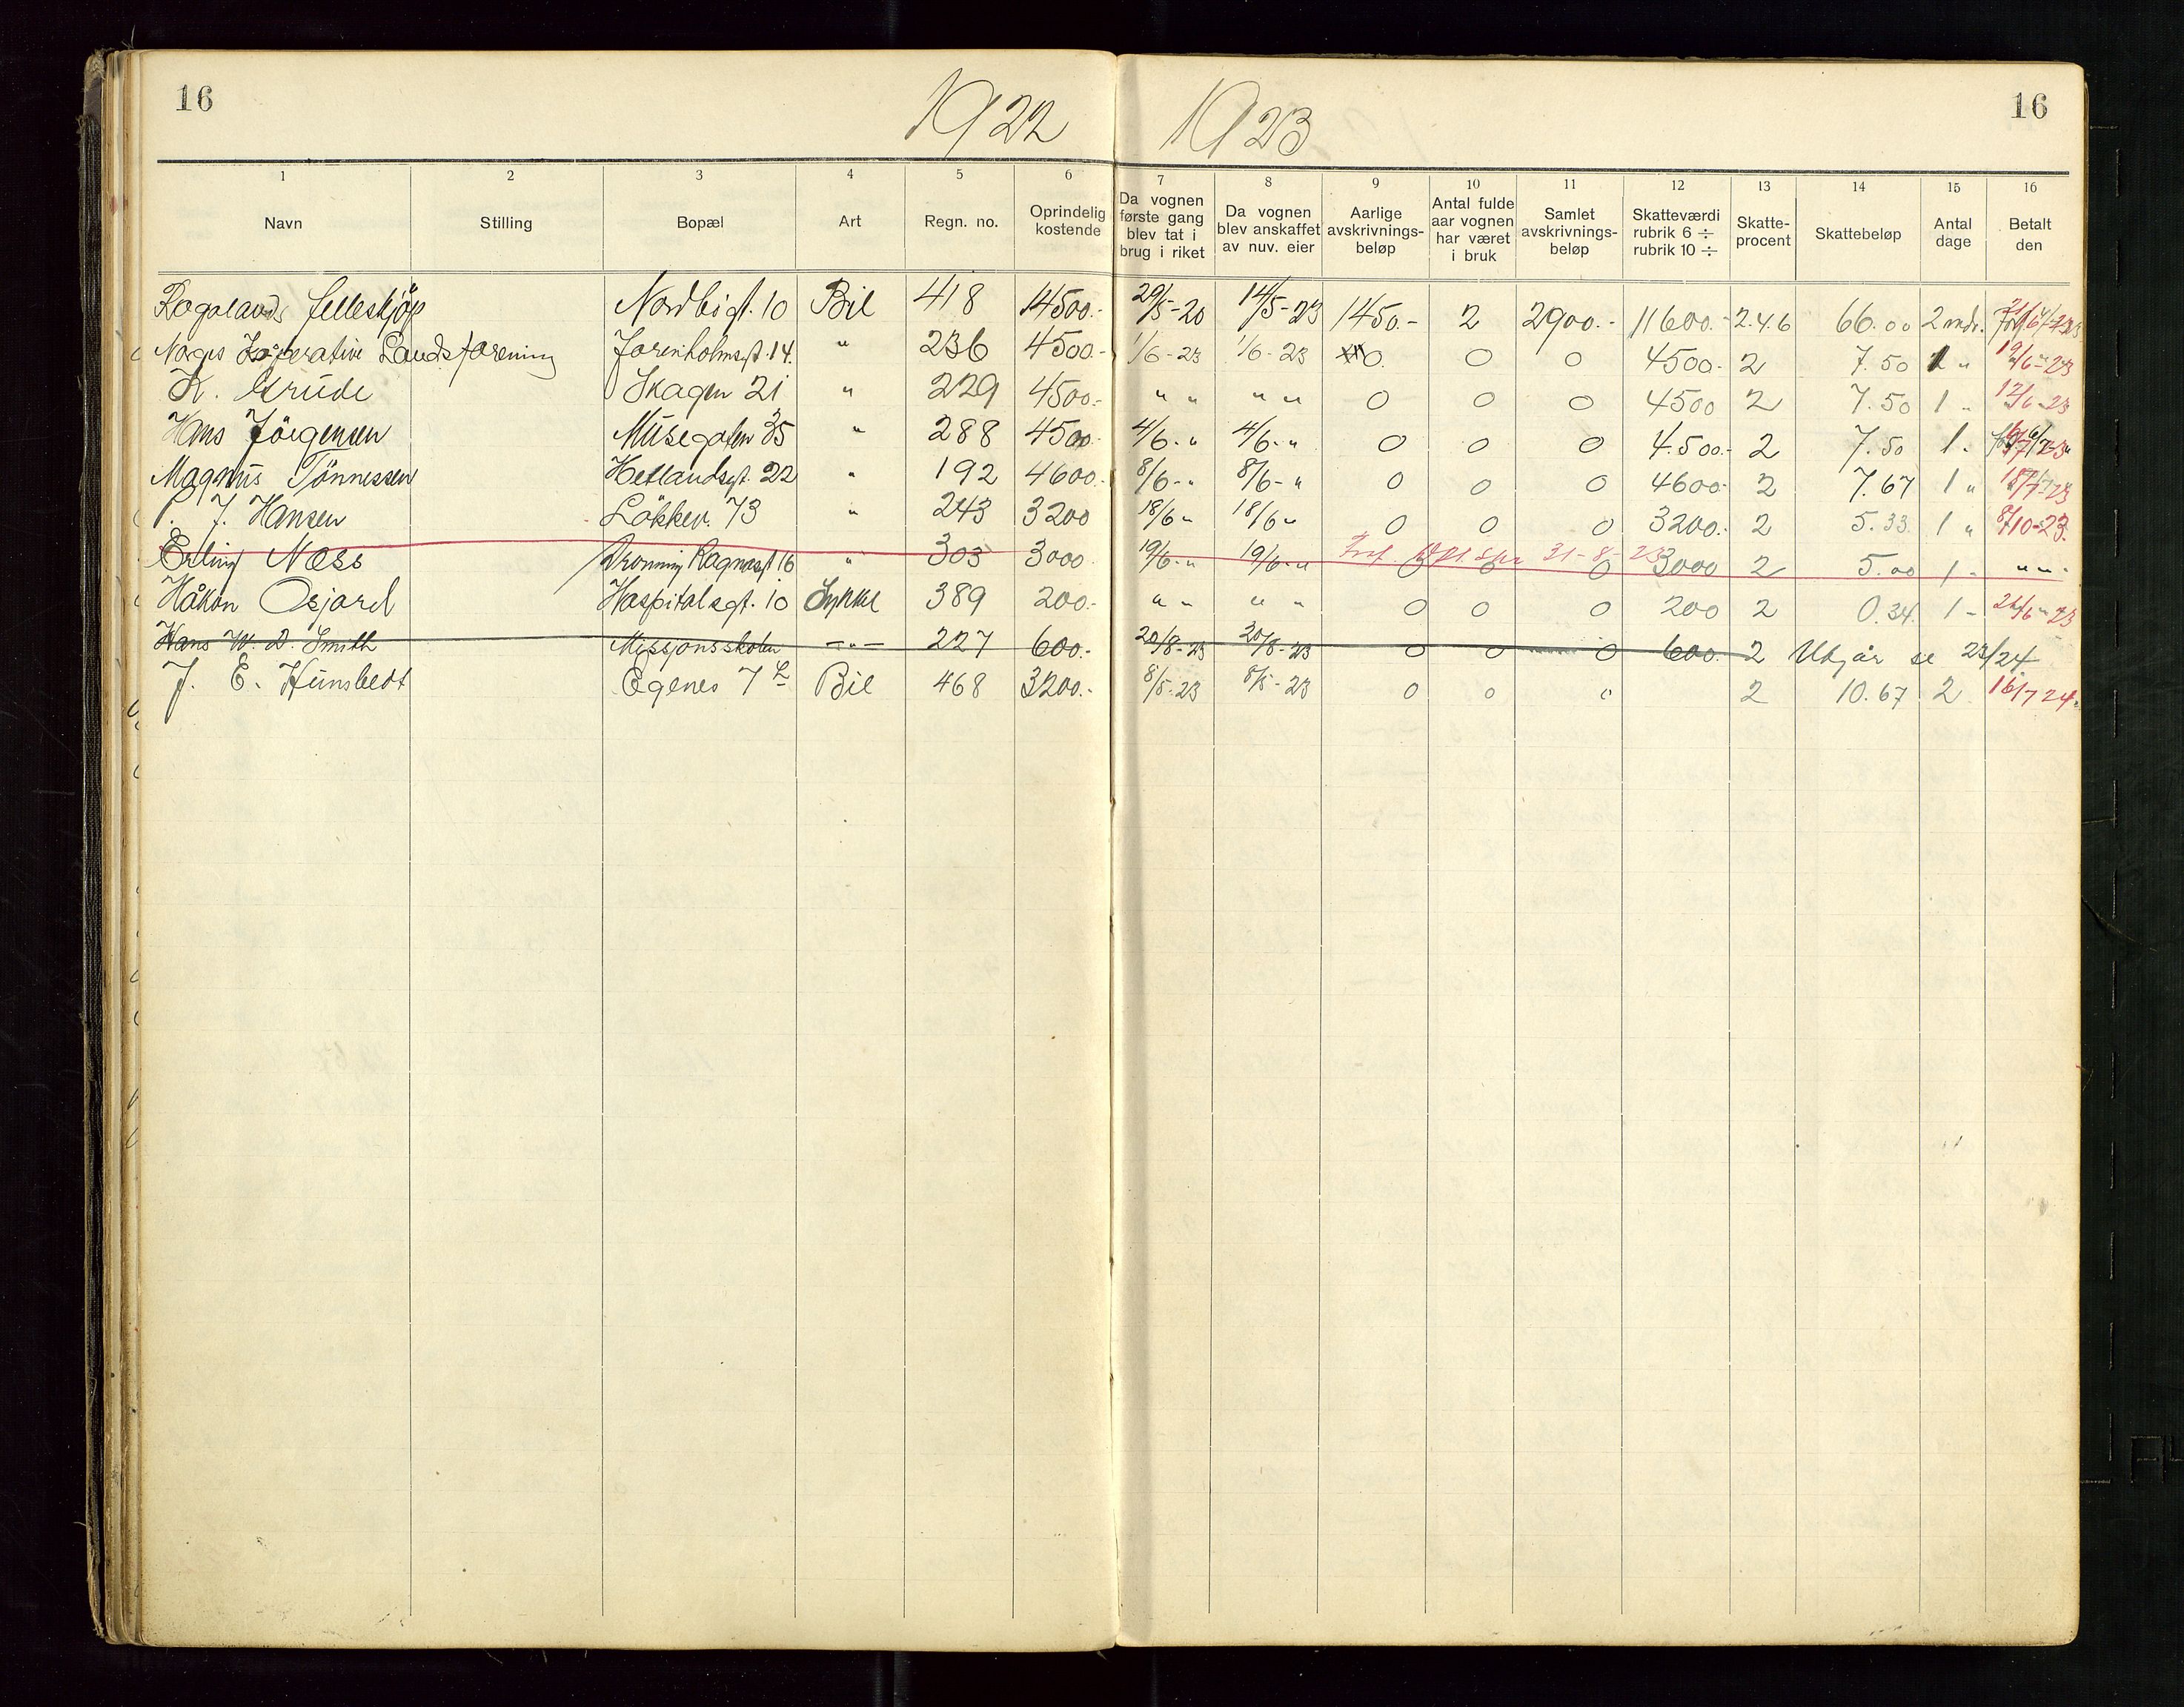 16 1922 1923 16
1 2 3 4 5 6 7 8 9 10 11 12 13 14 15 16
Navn Stilling Bopæl Art Regn. no. Oprindelig kostende Da vognen første gang blev tat i brug i riket Da vognen blev anskaffet av nuv. eier Aarlige avskrivnings-beløp Antal fulde aar vognen har været i bruk Samlet avskrivnings-beløp Skatteværdi rubrik 6 ÷ rubrik 10 ÷ Skatte-procent Skattebeløp Antal dage Betalt den
Rogalands felleskjöp Nordbögt. 10 Bil 418 14500.- 29/5-20 14/5-23 1450.- 2 2900.- 11600.- 2.4.6 66.00 2 mdr.
Norges Koperative Landsforening Jorenholmsgt. 14. " 236 4500- 1/6-23 1/6-23 0. 0 0 4500.- 2 7.50 1 " 19/6-23
K. Grude Skagen 21 " 229 4500.- " " " " 0 0 0 4500 2 7.50 1 " 12/6-23
Hans Jörgensen Musegaten 35 " 288 4500 4/6-" 4/6-" 0 0 0 4.500.- 2 7.50 1 "
Magnus Tönnessen Hetlandsgt. 22 " 192 4600.- 8/6-" 8/6-" 0 0 0 4600.- 2 7.67 1 " 18/7-23
P. J. Hansen Lökkev. 73 " 243 3200 18/6" 18/6" 0 0 0 3200.- 2 5.33 1 " 8/10-23.
Erling Næss Dronning Ragnasgt 16 " 303 3000 19/6-" 19/6-" 0 0 0 31-8-23 3000 2 5.00 1 - " " -
Håkon Osjord Hospitalsgt. 10 Sykkel 389 200.- " " " " 0 0 0 200 2 0.34 1 - 26/6-23
Hans W. D. Smith Missjonsskolen -"- 227 600.- 20/8-23 20/8-23 0 0 0 600. 2 Utgår se 23/24
J. E. Hunsbedt Egenes 7 L Bil 468 3200.- 8/5-23 8/5-23 0 0 0 2 10.67 2 16/7 24.